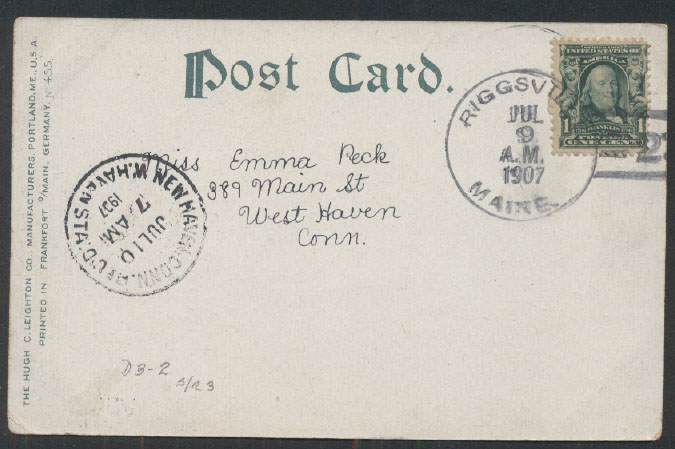 Post Card.
UNITED STATES OF AMERICA
1
FRANKLIN
ONE CENT
RIGGSVI
JUL
9
A.M.
1907
MAINE.
Miss Emma Peck
389 Main St
West Haven
Conn.
NEW HAVEN, CONN. REC'D.
W. HAVEN STA.
JUL 10
7 AM
1907
THE HUGH C. LEIGHTON CO., MANUFACTURERS, PORTLAND, ME., U.S.A.
PRINTED IN FRANKFORT O/MAIN, GERMANY. Nº 455
D3-2